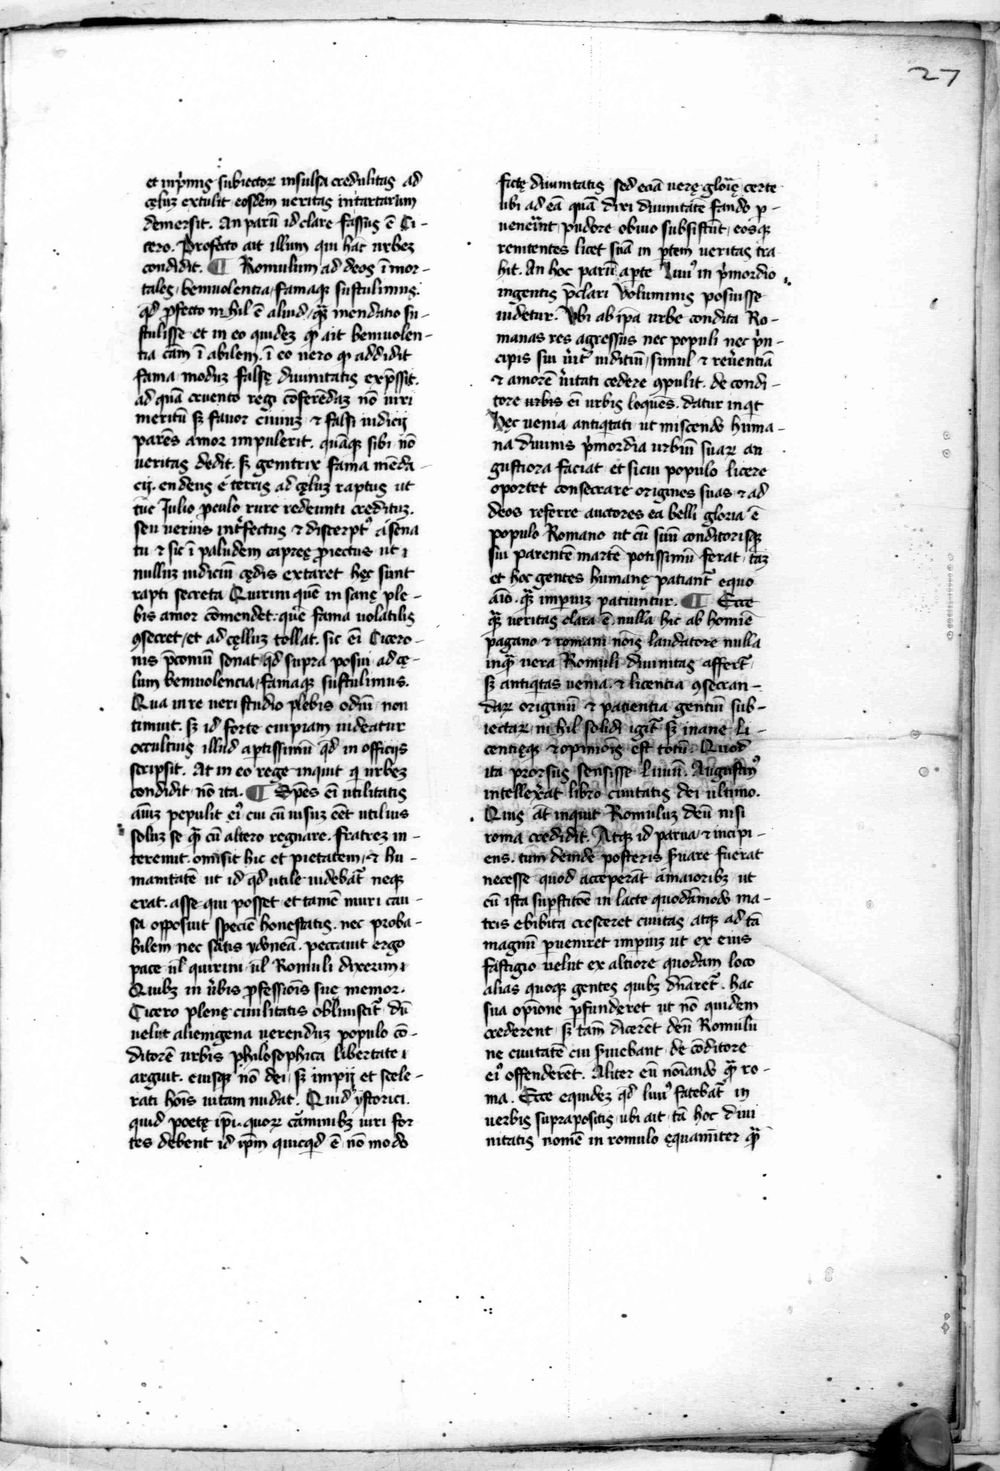 27
et inp̄mis subiectoꝝ insulsa credulitas ad
cęluꝫ extulit eosdem ueritas in tartarum
demersit. An paruꝫ id clare fassus ē Ci-
cero. Profecto ait illum qui hāc urbeꝫ
condidit. ¶ Romulum ad deos īmor-
tales, beniuolentia, famaqꝫ sustulimus.
qd̄ ꝓfecto nihil ē aliud,
stulisse et in eo quideꝫ ait beniuolen-
tia ī eo uero addidit
fama moduꝫ falsę diuinitatis exp̄ssit.
ad quā cruento regi cōferēdaꝫ nō uiri
meritū sꝫ fauor ciuiuꝫ ⁊ falsi iudicij
parēs amor impulerit. quāqꝫ sibi nō
ueritas dedit. sꝫ genitrix fama mēda-
cij. en deus e terris ad cęluꝫ raptus ut
tūc Julio ꝓculo rure redeunti credituꝫ.
seu uerius intͤfectus ⁊ discerptꝰ a sena
tu ⁊ sic ī paludem capreę ꝓiectus ut
nulluꝫ iudiciū cędis extaret hęc sunt
rapti secreta Quirini quē in sanę ple-
bis amor cōmendet. quē fama uolatilis
ꝯsecret, et ad cęlluꝫ tollat. sic eī Cicero-
nis p̄coniū sonat qd̄ supra posui ad cę-
lum beniuolencia, famaqꝫ sustulimus.
Qua in re ueri studio plebis odiū non
timuit. sꝫ id forte cuipiam uideatur
occultius illud apertissimū qd̄ in officijs
scripsit. At in eo rege inquit qi urbeꝫ
condidit nō ita. ¶ Spes eī utilitatis
aīuꝫ pepulit eiꝰ cui cū uisuꝫ eēt utilius
soluꝫ se q̄ꝫ cū altero regnare. fratreꝫ in-
teremit. omisit hic et pietatem, ⁊ hu-
manitatē ut id qd̄ utile uidebat̄ neqꝫ
erat. asse qui posset et tamē muri cau-
sa opposuit speciē honestatis. nec proba-
bilem nec satis ydoneā. peccauit ergo
pace ūl quirini ūl Romuli dixerim
Quibꝫ in ūbis ꝓfessiōis sue memor.
Cicero plenę ciuilitatis obliuiscit̄ dū
uelut alienigena uerenduꝫ populo cō-
ditorē urbis philosophica libertate
arguit. eiusqꝫ nō dei, sꝫ impij et scele-
rati hoīs uitam nudat. Quid ystorici.
quid poetę ip̄i. quoꝝ cāminibꝫ uiri for
tes debent id ip̄m quicqd̄ ē nō modo
fictę diuinitatis sed etiā uerę glorię certe
ubi ad eā quā dixi diuinitatē fando ꝑ-
uenerint, pudore obuio subsistūt, eosqꝫ
renitentes licet suā in ꝑtem ueritas tra
hit. An hoc parū apte Liuiꝰ in p̄mordio
ingentis p̄clari uoluminis posuisse
uidetur. Vbi ab ip̄a urbe condita Ro-
manas res agressus nec populi nec p̄n-
cipis sui iuditiū, simul ⁊ reuerentiā
⁊ amorē ūitati cedere ꝯpulit. de condi-
tore urbis eī urbis loquēs. datur inqt
Hec uenia antiqtati ut miscendo huma-
na diuinis p̄mordia urbiū suaꝝ au
gustiora faciat et si cui populo licere
oportet consecrare origines suas ⁊ ad
deos referre auctores ea belli gloria ē
populo Romano ut cū suū conditorisqꝫ
sui parentē martē potissimū ferat, taꝫ
et hoc gentes humanę patiant̄ equo
aīo. q̄ꝫ imperiuꝫ patiuntur. ¶ Ecce
q̄ꝫ ueritas clara ē nulla hic ab homīe
pagano ⁊ romani nōis laudatore nulla
inq̄ꝫ uera Romuli diuinitas affert̄,
sꝫ antiqtas uenia. ⁊ licentia ꝯsecran-
daꝝ originū ⁊ patientia gentiū sub-
iectaꝝ nihil solidi igit̄ sꝫ inane li-
centięqꝫ ⁊ opiniōis est totū. Quod
ita prorsus sensisse Liuiū. Augustinꝰ
intellexerat libro ciuitatis dei ultimo.
Quis āt inquit Romuluꝫ deū nisi
roma credidit. Atqꝫ id parua, ⁊ incipi-
ens. tum deinde posteris ẜuare fuerat
necesse quod acceperāt a maioribꝫ ut
cū ista suꝑstitiōe in lacte quodāmodo ma-
tris ebibita cresceret ciuitas, atqꝫ ad tā
magnū ꝑueniret imperiuꝫ ut ex eius
fastigio uelut ex altiore quodam loco
alias quoqꝫ gentes quibꝫ dn̄aret̄. hac
sua opīone ꝑfunderet ut nō quidem
crederent, sꝫ tām dicerēt deū Romulū
ne ciuitatē cui ẜuiebant de cōditore
eiꝰ offenderēt. Aliter eū noīando q̄ꝫ ro-
ma. Ecce equidez qd̄ liuiꝰ fatebat̄ in
uerbis suprapositis, ubi ait, tā hoc diui
nitatis nomē in romulo ęquanīter q̄ꝫ